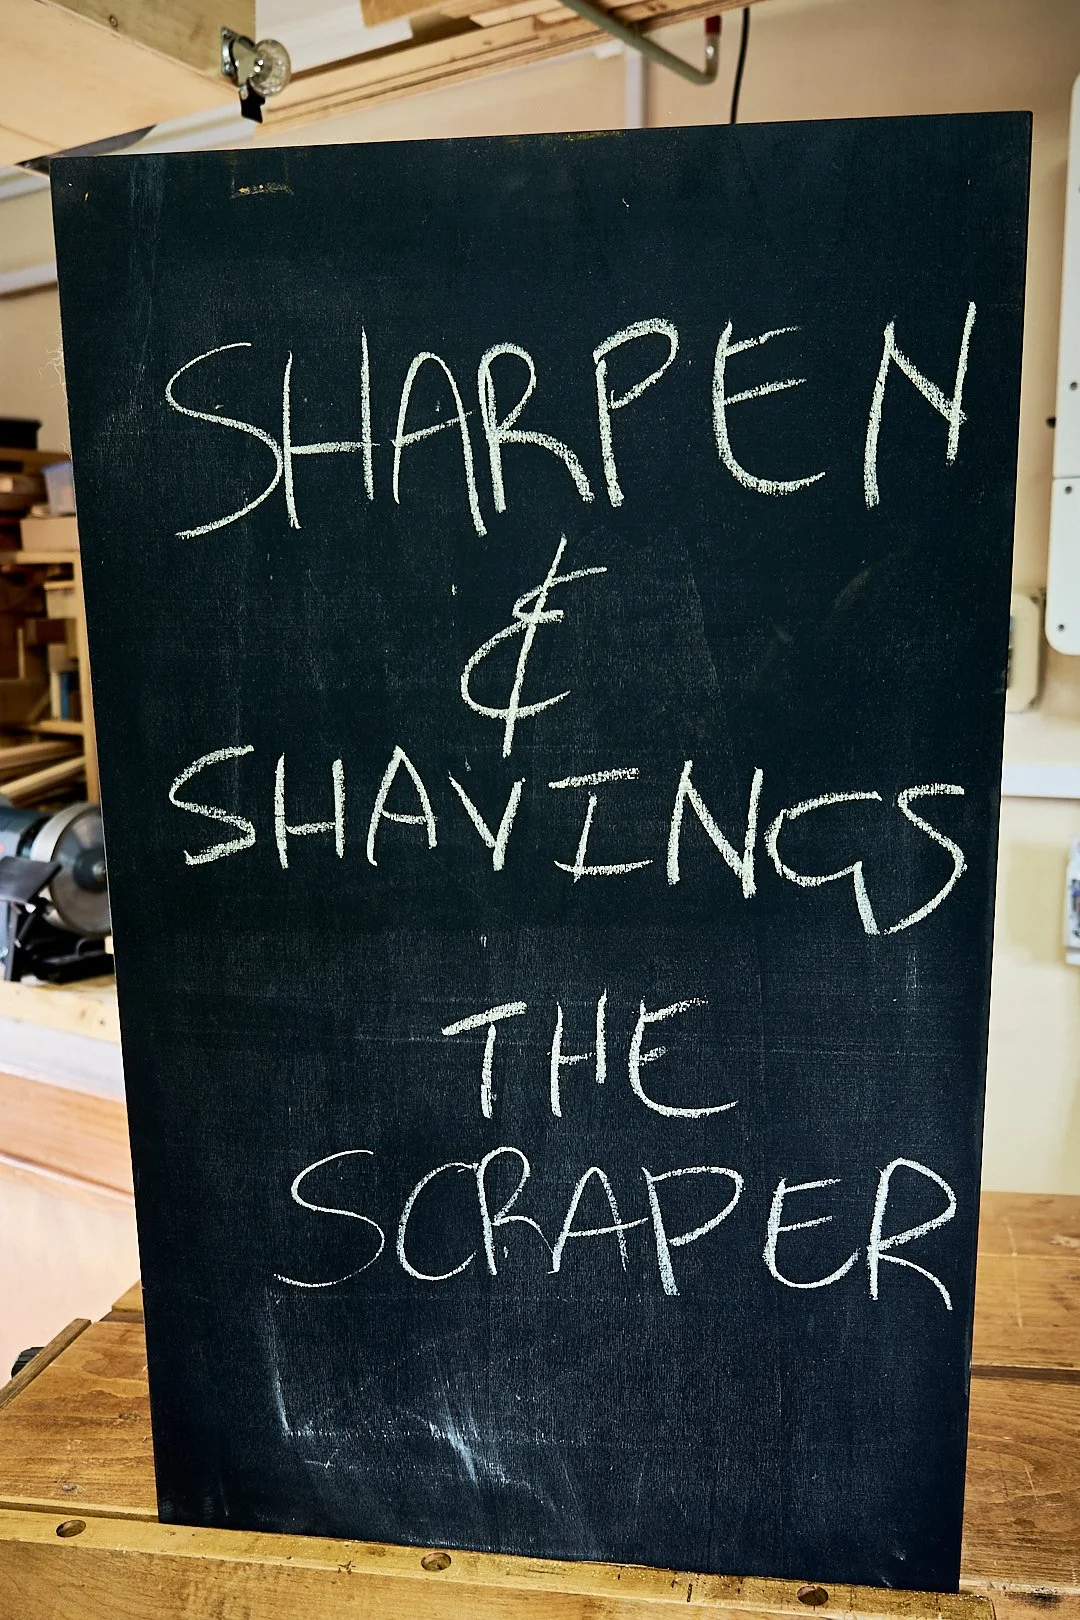 SHARPEN
&
SHAVINGS
THE
SCRAPER